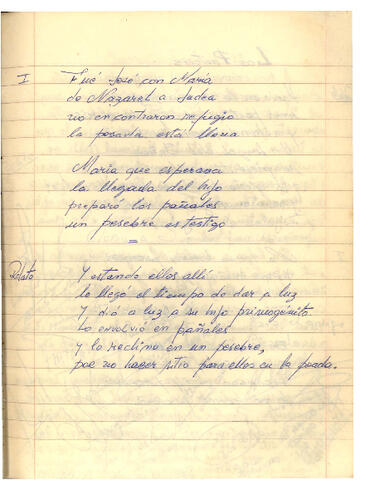 I
Fué José con María
de Nazaret a Judea
no encontraron refugio
la posada está llena
María que esperava
la llegada del hijo
preparó los pañales
un pesebre es testigo
Relato
Y estando ellos allí
le llegó el tiempo de dar a luz
y dió a luz a su hijo primogénito.
Lo envolvió en pañales
y lo reclinó en un pesebre,
por no haber sitio para ellos en la posada.